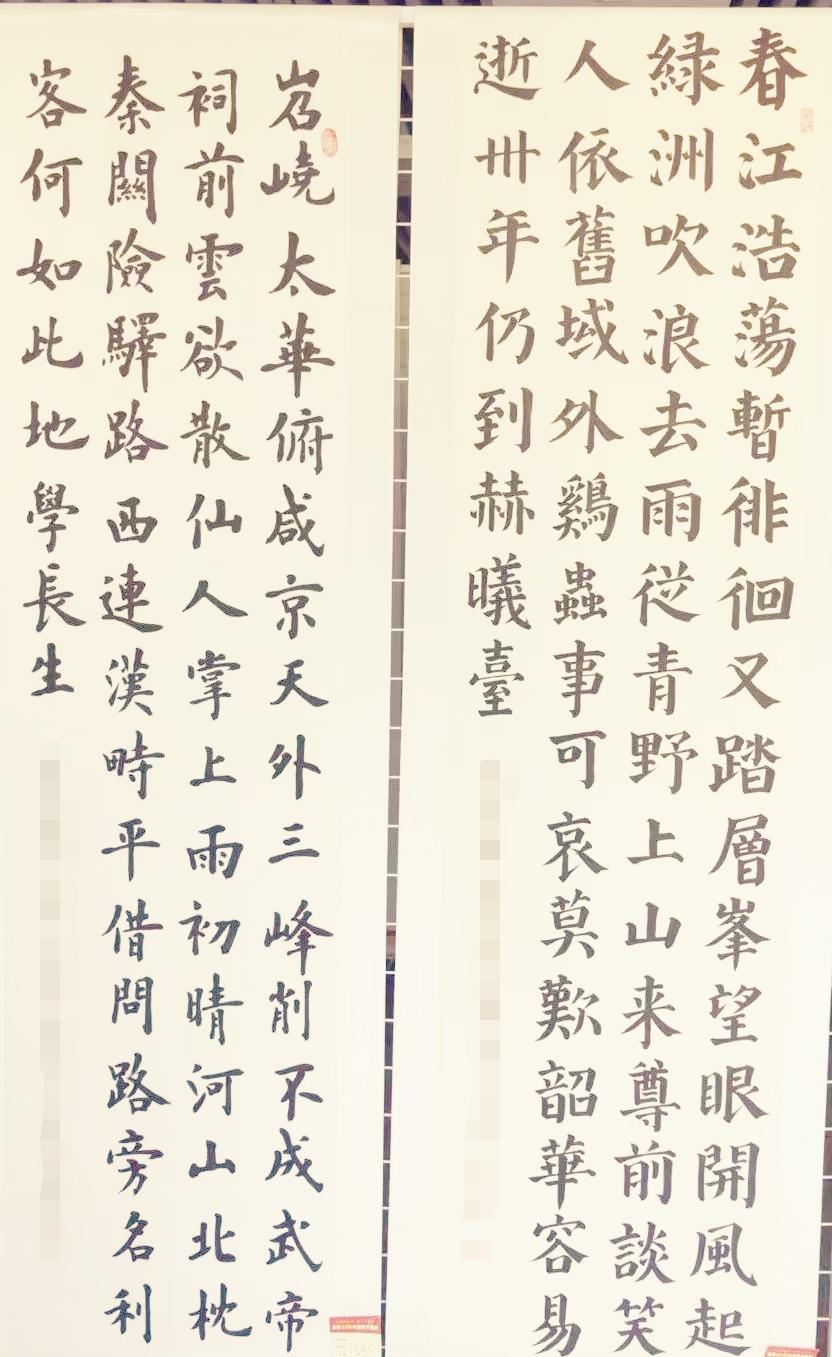 春江浩蕩暫徘徊又踏層峯望眼開風起
緑洲吹浪去雨従青野上山来尊前談笑
人依舊域外鷄蟲事可哀莫歎韶華容易
逝卅年仍到赫曦臺
岧嶢太華俯咸京天外三峰削不成武帝
祠前雲欲散仙人掌上雨初晴河山北枕
秦關險驛路西連漢畤平借問路旁名利
客何如此地學長生